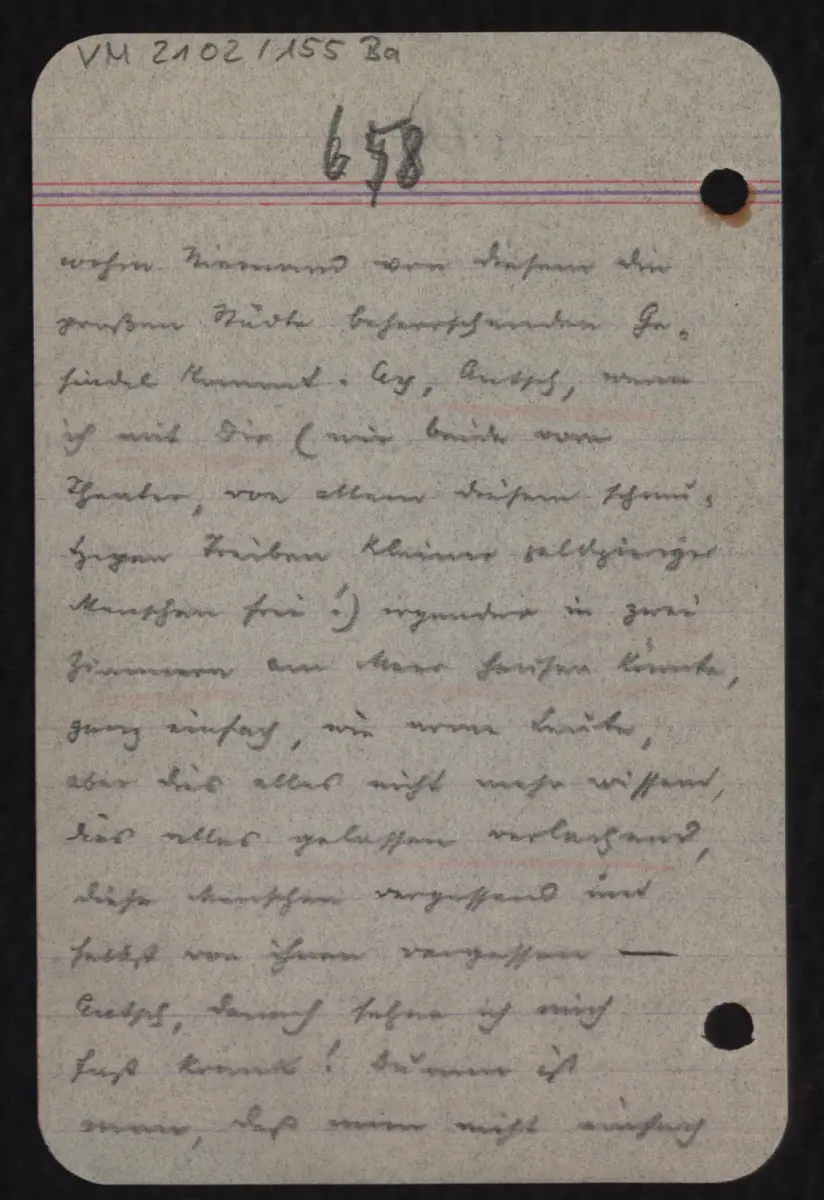 VM 2102/155 Ba
658
wohin Niemand von diesem die
großen Städte beherrschenden Ge-
sindel kommt. Ach, Putsch, wenn
ich mit Dir (wir beide vom
Theater, von allem diesem schmu-
tzigen Treiben kleiner geldgieriger
Menschen frei!) irgendwo in zwei
Zimmern am Meer hausen könnte,
ganz einfach, wie arme Leute,
aber dies alles nicht mehr wissend,
dies alles gelassen verlachend,
diese Menschen vergessend und
selbst von ihnen vergessen —
danach sehne ich mich
fast krank! Dumm ist
man, daß man nicht einfach